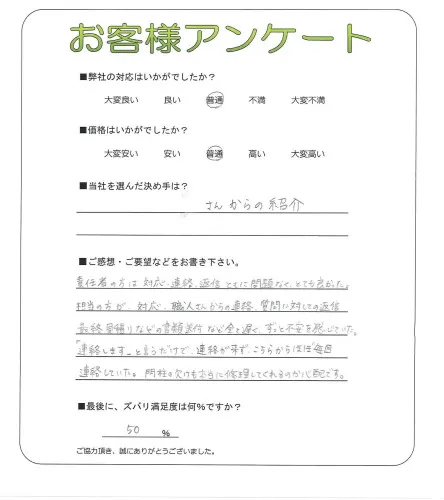 お客様アンケート
■弊社の対応はいかがでしたか?
大変良い 良い 普通 不満 大変不満
■価格はいかがでしたか?
大変安い 安い 普通 高い 大変高い
■当社を選んだ決め手は?
さんからの紹介
■ご感想・ご要望などをお書き下さい。
責任者の方は対応、連絡、返信ともに問題なく、とても良かった。
担当の方が、対応、職人さんからの連絡、質問に対しての返信
最終見積りなどの書類送付など全て遅く、ずっと不安を感じていた。
「連絡します。」と言うだけで、連絡が来ず、こちらからほぼ毎回
連絡していた。門柱の欠けも本当に修理してくれるのか心配です。
■最後に、ズバリ満足度は何%ですか?
50 %
ご協力頂き、誠にありがとうございました。